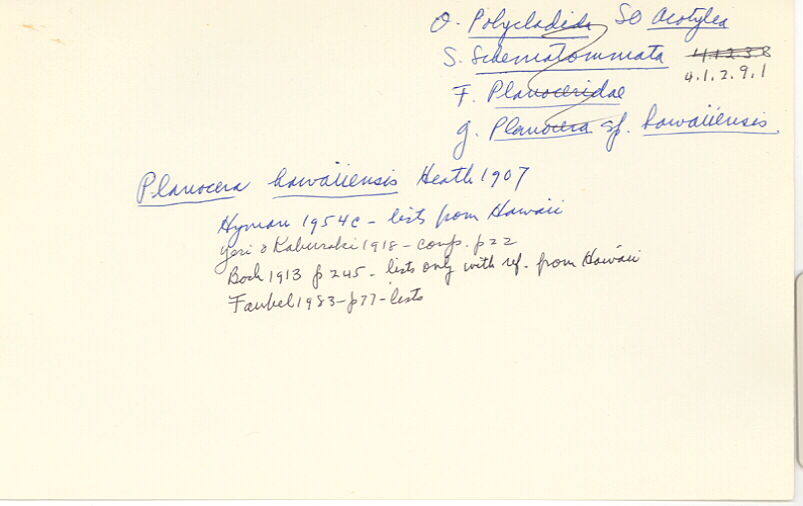 O. Polycladida SO Acotylea
S. Schematommata 4.1.2.3.8
4.1.2.9.1
F. Planoceridae
g. Planocera sp. hawaiiensis
Planocera hawaiiensis Heath 1907
Hyman 1954c - lists from Hawaii
Yeri & Kaburaki 1918 - comp. p 22
Bock 1913 p 245 - lists only with ref. from Hawaii
Faubel 1983 - p 77 - lists